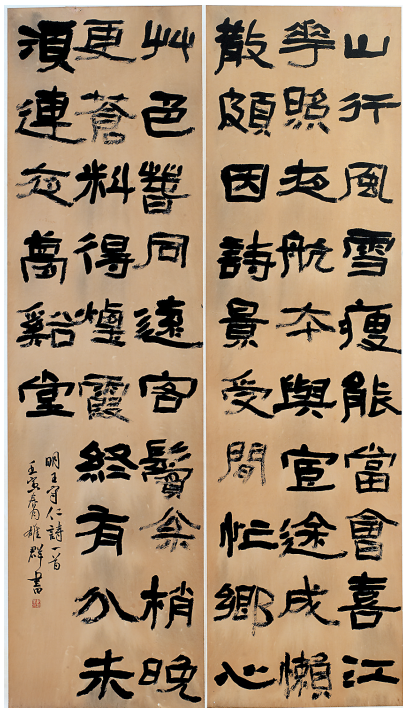 山行風雪瘦能當會喜江
華照夜航本與宦途成懶
散頗因詩景受閒忙鄉心
艸色萅同遠客鬢枀梢晚
更蒼料得煙霞終有分未
須連夜萬谿堂
明王守仁詩一首
壬寅春月雄群書